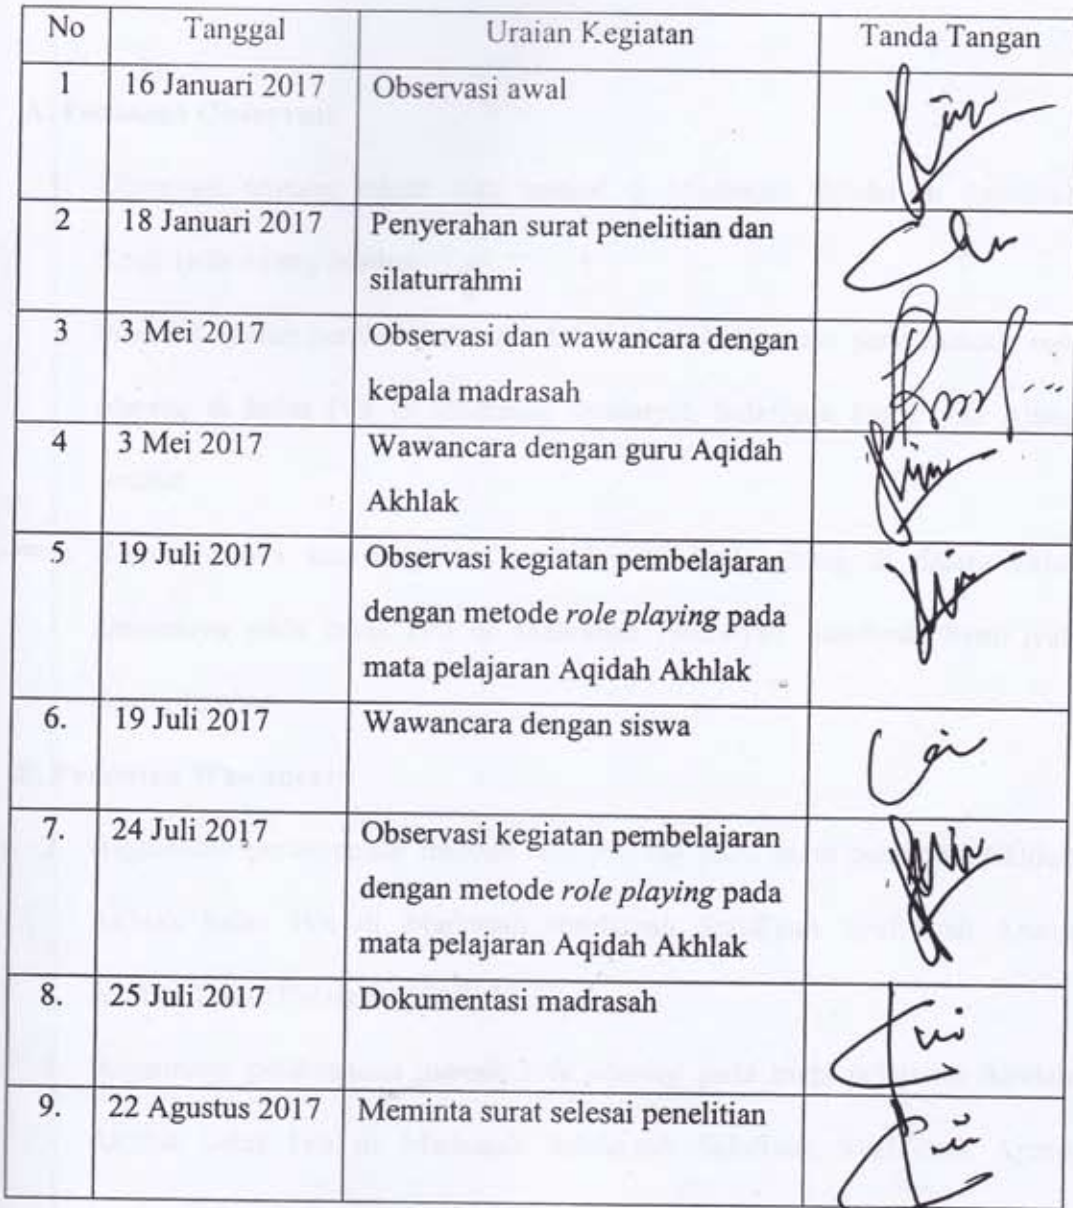 No Tanggal Uraian Kegiatan Tanda Tangan
1 16 Januari 2017 Observasi awal
2 18 Januari 2017 Penyerahan surat penelitian dan
silaturrahmi
3 3 Mei 2017 Observasi dan wawancara dengan
kepala madrasah
4 3 Mei 2017 Wawancara dengan guru Aqidah
Akhlak
5 19 Juli 2017 Observasi kegiatan pembelajaran
dengan metode role playing pada
mata pelajaran Aqidah Akhlak
6. 19 Juli 2017 Wawancara dengan siswa
7. 24 Juli 2017 Observasi kegiatan pembelajaran
dengan metode role playing pada
mata pelajaran Aqidah Akhlak
8. 25 Juli 2017 Dokumentasi madrasah
9. 22 Agustus 2017 Meminta surat selesai penelitian